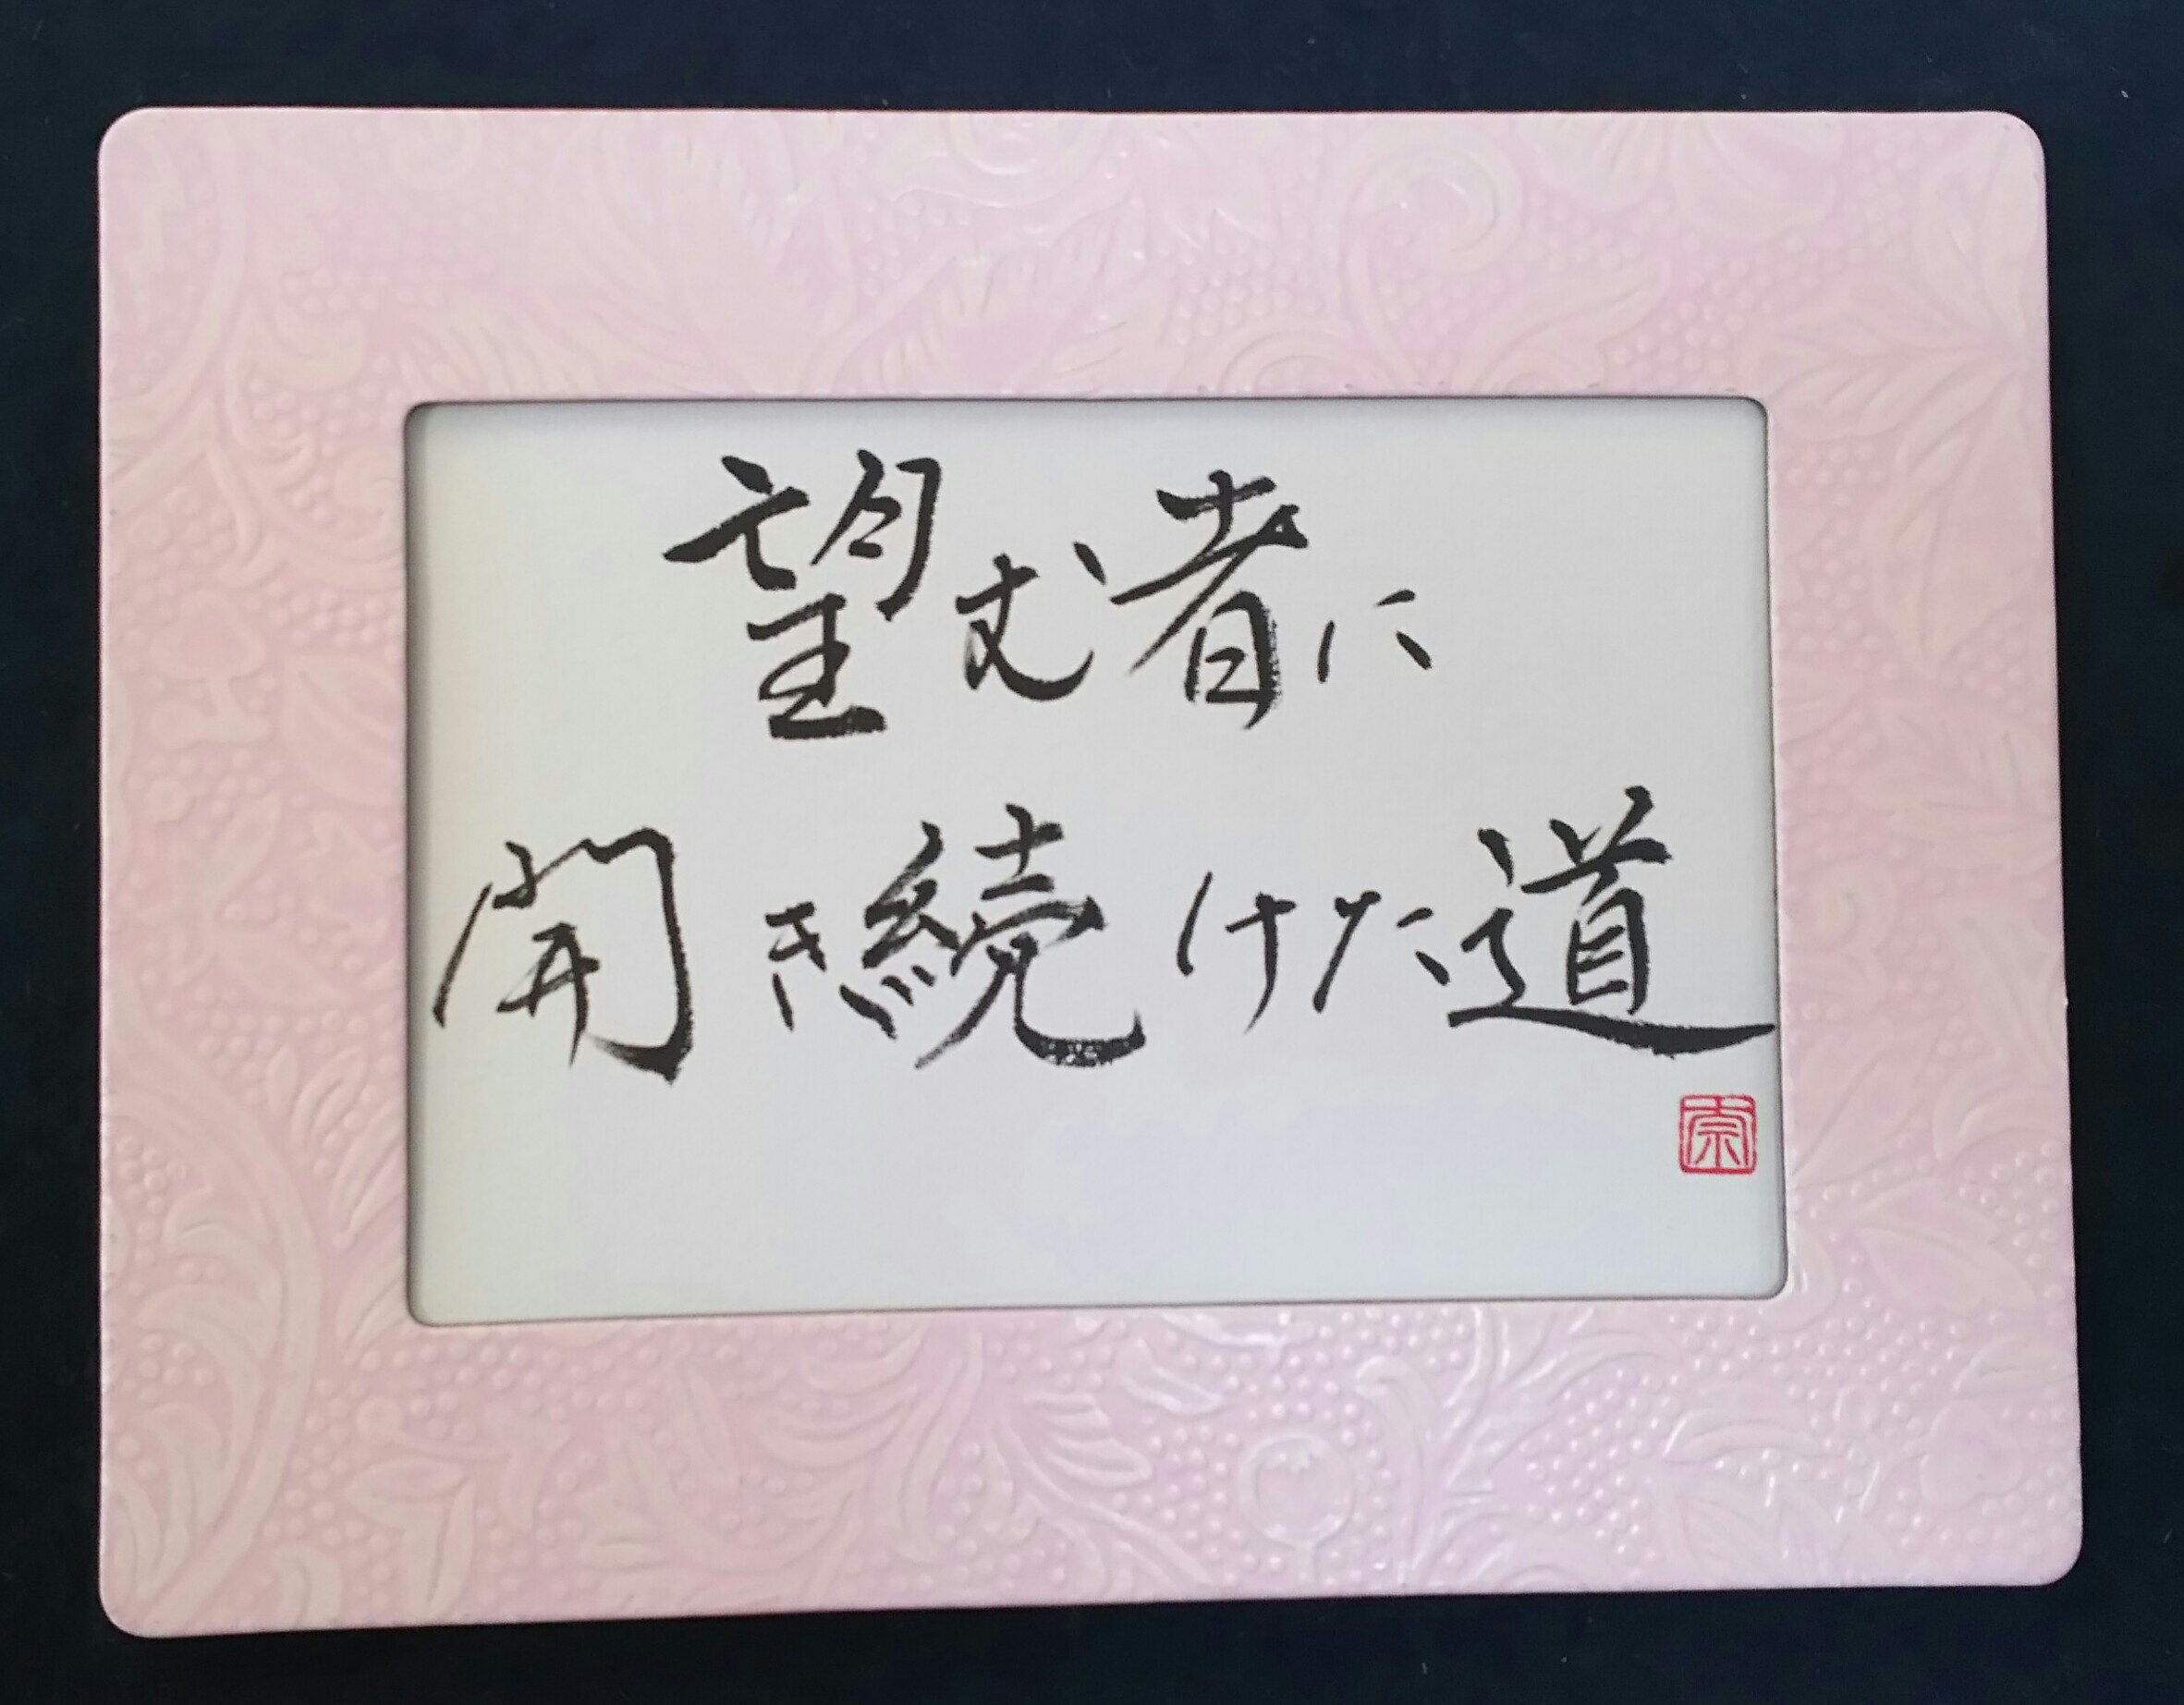 望む者に
開き続けた道
宗